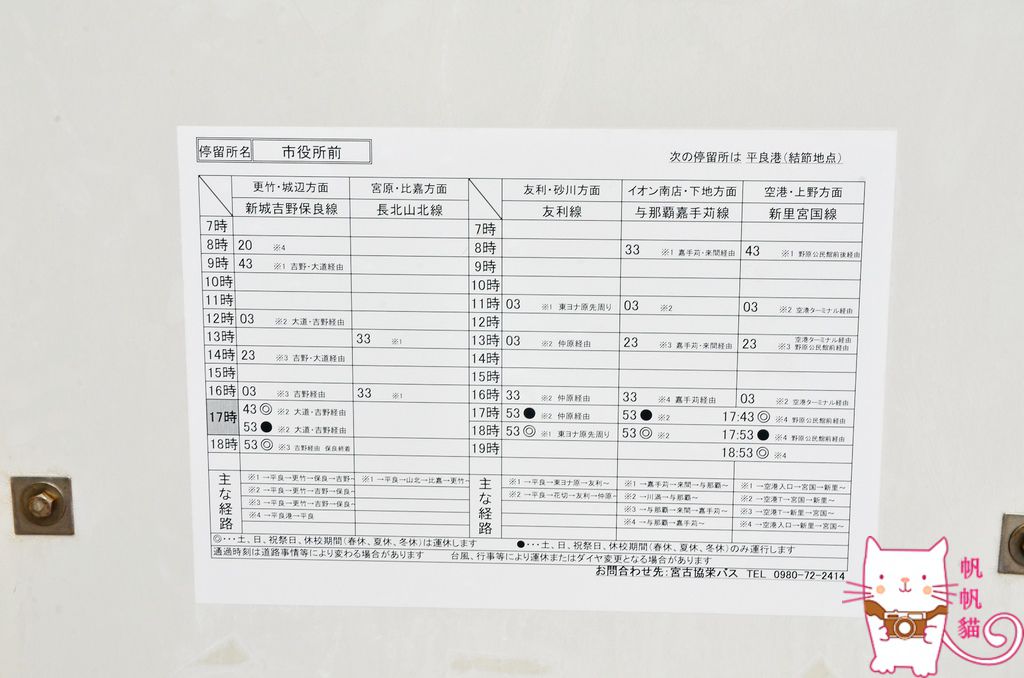 停留所名 市役所前
次の停留所は 平良港(結節地点)
更竹・城辺方面 宮原・比嘉方面 友利・砂川方面 イオン南店・下地方面 空港・上野方面
新城吉野保良線 長北山北線 友利線 与那覇嘉手苅線 新里宮国線
7時 7時
8時 20 ※4 8時 33 ※1 嘉手苅・来間経由 43 ※1 野原公民館前後経由
9時 43 ※1 吉野・大道経由 9時
10時 10時
11時 11時 03 ※1 東ヨナ原先周り 03 ※2 03 ※2 空港ターミナル経由
12時 03 ※2 大道・吉野経由 12時
13時 33 ※1 13時 03 ※2 仲原経由 23 ※3 嘉手苅・来間経由 23 空港ターミナル経由 ※3 野原公民館前経由
14時 23 ※3 吉野・大道経由 14時
15時 15時
16時 03 ※3 吉野経由 33 ※1 16時 33 ※2 仲原経由 33 ※4 嘉手苅経由 03 ※2 空港ターミナル経由
17時 43 ◎ ※2 大道・吉野経由 17時 53 ● ※2 仲原経由 53 ● ※2 17:43 ◎ ※4 野原公民館前経由
53 ● ※2 大道・吉野経由 18時 53 ◎ ※1 東ヨナ原先周り 53 ◎ ※2 17:53 ● ※4 野原公民館前経由
18時 53 ◎ ※3 吉野経由 保良終着 19時 18:53 ◎ ※4
主な経路 ※1 →平良→更竹→保良→吉野~ ※1 →平良→山北→比嘉→更竹~ 主な経路 ※1 →平良→東ヨナ原→友利~ ※1 →嘉手苅→来間→与那覇~ ※1 →空港入口→宮国→新里~
※2 →平良→更竹→保良→吉野~ ※2 →平良→花切→友利→仲原~ ※2 →川満→与那覇~ ※2 →空港T→宮国→新里~
※3 →平良→更竹→吉野→保良~ ※3 →与那覇→来間→嘉手苅~ ※3 →空港T→新里→宮国~
※4 →平良港→平良 ※4 →与那覇→嘉手苅~ ※4 →空港入口→新里→宮国~
◎・・・土、日、祝祭日、休校期間(春休、夏休、冬休)は運休します ●・・・土、日、祝祭日、休校期間(春休、夏休、冬休)のみ運行します
通過時刻は道路事情等により変わる場合があります 台風、行事等により運休またはダイヤ変更となる場合があります
お問合わせ先:宮古協栄バス TEL 0980-72-2414
帆帆貓